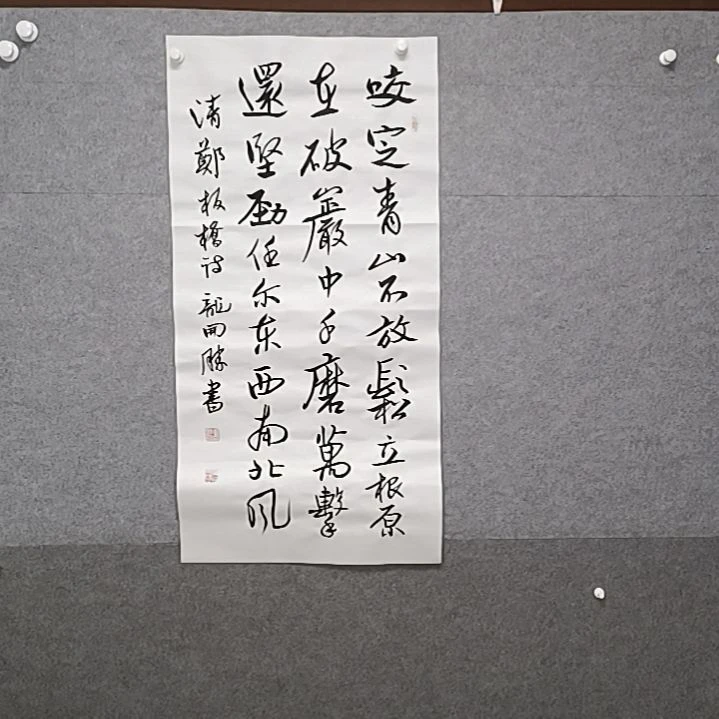 咬定青山不放鬆立根原
在破巖中千磨萬擊
還堅勁任尔东西南北风
清鄭板橋詩龍開勝書